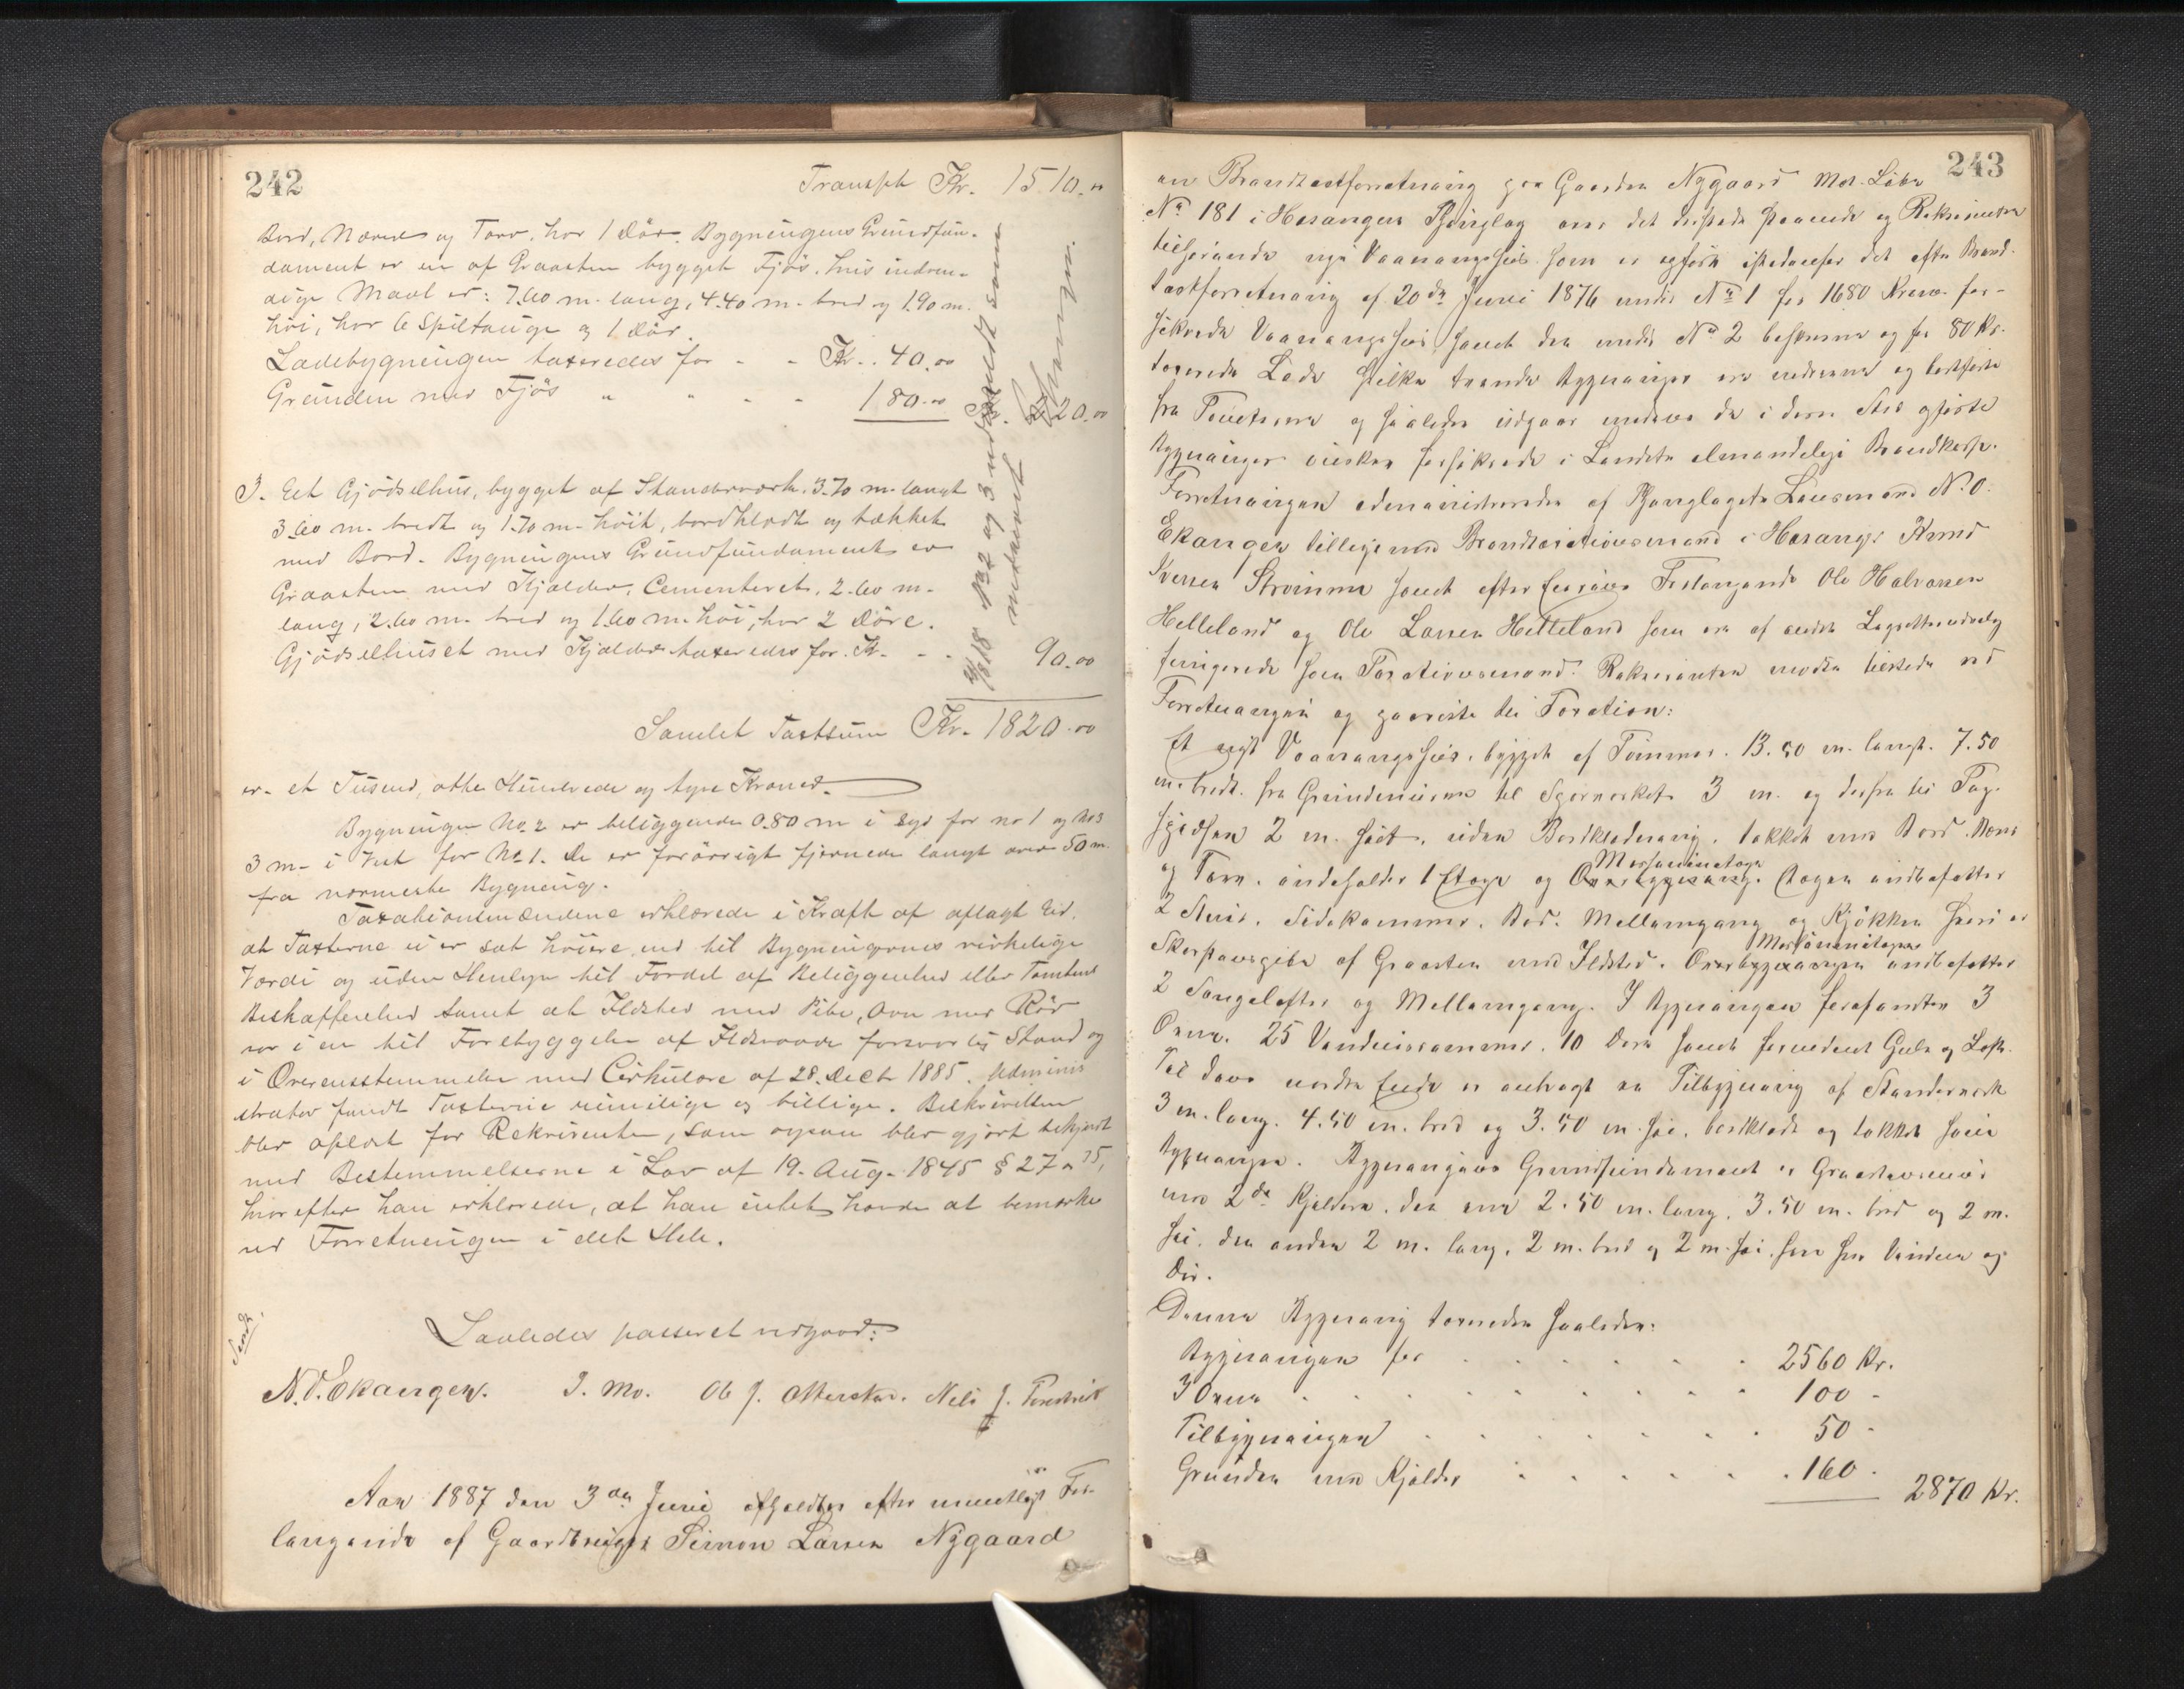 242
Transpt Kr. 1510.00
Bord, Næver og Torv, har 1 Dör. Bygningens Grundfun-
dament er en af Graasten bygget Fjös, hvis indven-
dige Maal er: 7.60 m. lang, 4.40 m. bred og 1.90 m.
höi, har 6 Spiltauge og 1 Dör.
Ladebygningen taxeredes for - - Kr. 40.00
Grunden med Fjös " " - - 180.00 220.00
3. Eet Gjödselhus, bygget af Standerværk, 3.70 m. langt
3.60 m. bredt og 1.70 m. höit, bordklædt og tækket
med Bord. Bygningens Grundfundament er
Graasten med Kjælder, Cementeret, 2.60 m.
lang, 2.60 m. bred og 1.60 m. höi, har 2 Döre.
Gjödselhuset med Kjælder taxeredes for Kr. - - 90.00
No 2 og 3 udmeldt som
nedrevet Ekanger.
Samlet Taxtsum Kr. 1820.00
er et Tusend, otte Hundrede og tyve Kroner.
Bygningen No 2 er beliggende 0.80 m i Syd for no 1 og No 3
3 m. i Vest for No 1. De er forövrigt fjernede langt over 50 m.
fra nærmeste Bygning.
Taxationsmændene erklærede i Kraft af aflagt Eid,
at Taxterne ei er sat höiere end til Bygningernes virkelige
Værdi og uden Hensyn til Fordel af Beliggenhed eller Tomtens
Beskaffenhed samt at Ildsted med Pibe, Ovn med Rör
var i en til Forebyggelse af Ildsvaade forsvarlig Stand og
i Overensstemmelse med Cirkulære af 28. Decbr 1885. Adminis-
trator fandt Taxterne rimelige og billige. Beskrivelsen
blev oplæst for Rekvirenten, som ogsaa blev gjort bekjendt
med Bestemmelserne i Lov af 19. Aug. 1845 § 27 a 35,
hvorefter han erklærede, at han intet havde at bemærke
ved Forretningen i det Hele.
Sendt.
Saaledes passeret vidgaaes:
N. O. Ekanger. J. Mo. Ole J. Otterstad. Nils J.
Aar 1887 den 3die Juni afholdtes efter mundtligt For-
langende af Gaardbruger Simon Larsen Nygaard
243
en Brandtaxtforretning paa Gaarden Nygaard Mat. Löbe
No 181 i Hosanger Thinglag over det dersteds staaende og Rekvirenten
tilhörende nye Vaaningshus som er opfört istedenfor det efter Brand-
taxtforretning af 20de Juni 1876 under No 1 for 1680 Kroner for-
sikrede Vaaningshus samt den under No 2 beskrevne og for 80 Kr.
taxerede Lade hvilke tvende Bygninger ere nedrevne og bortförte
fra Tomterne og saaledes udgaar medens de i deres Sted opförte
Bygninger önskes forsikrede i Landets almindelige Brandkasse.
Forretningen administreredes af Thinglagets Lensmand N. O.
Ekanger tillige med Brandtaxationsmand i Hosanger Knud
Iversen Strömme samt efter Forlangende Ole Halvorsen
Helleland og Ole Larsen Helleland som er af andet Lagretteudvalg
fungerede som Taxationsmænd. Rekvirenten mödte tilstede ved
Forretningen og paaviste til Taxation:
Et nyt Vaaningshus, bygget af Tömmer, 13.50 m. langt, 7.50
m. bredt, fra Grundmuren til Sperrerket 3 m. og derfra til Tag-
höiden 2 m. höit, uden Bordklædning, tækket med Bord, Næver
og Torv, indeholder 1 Etage og Overbygning Messanineetage. Etagen indbefatter
2 Stuer, Sidekammer, Bod, Mellemgang og Kjökken hvori er
Skorstenspibe af Graasten med Ildsted. Overbygningen Messanineetagen indbefatter
2 Sengelofter og Mellemgang. I Bygningen forefandtes 3
Ovne, 25 Vinduesrammer, 10 Döre samt fornödent Gulv og Loft.
Ved dens nordre Ende er anbragt en Tilbygning af Standerverk
3 m. lang, 4.50 m. bred og 3.50 m. höi, bordklædt og tækket som
Bygningen. Bygningens Grundfundament er Graastensmur
med 2de Kjeldere, den ene 2.50 m. lang, 3.50 m. bred og 2 m.
höi, den anden 2 m. lang, 2 m. bred og 2 m. höi, hver har Vindue og
Dör.
Denne Bygning taxeredes saaledes:
Bygningen for - - - 2560 Kr.
3 Ovne - - - 100 -
Tilbygningen - - - 50 -
Grunden med Kjelder - - - 160 - 2870 Kr.